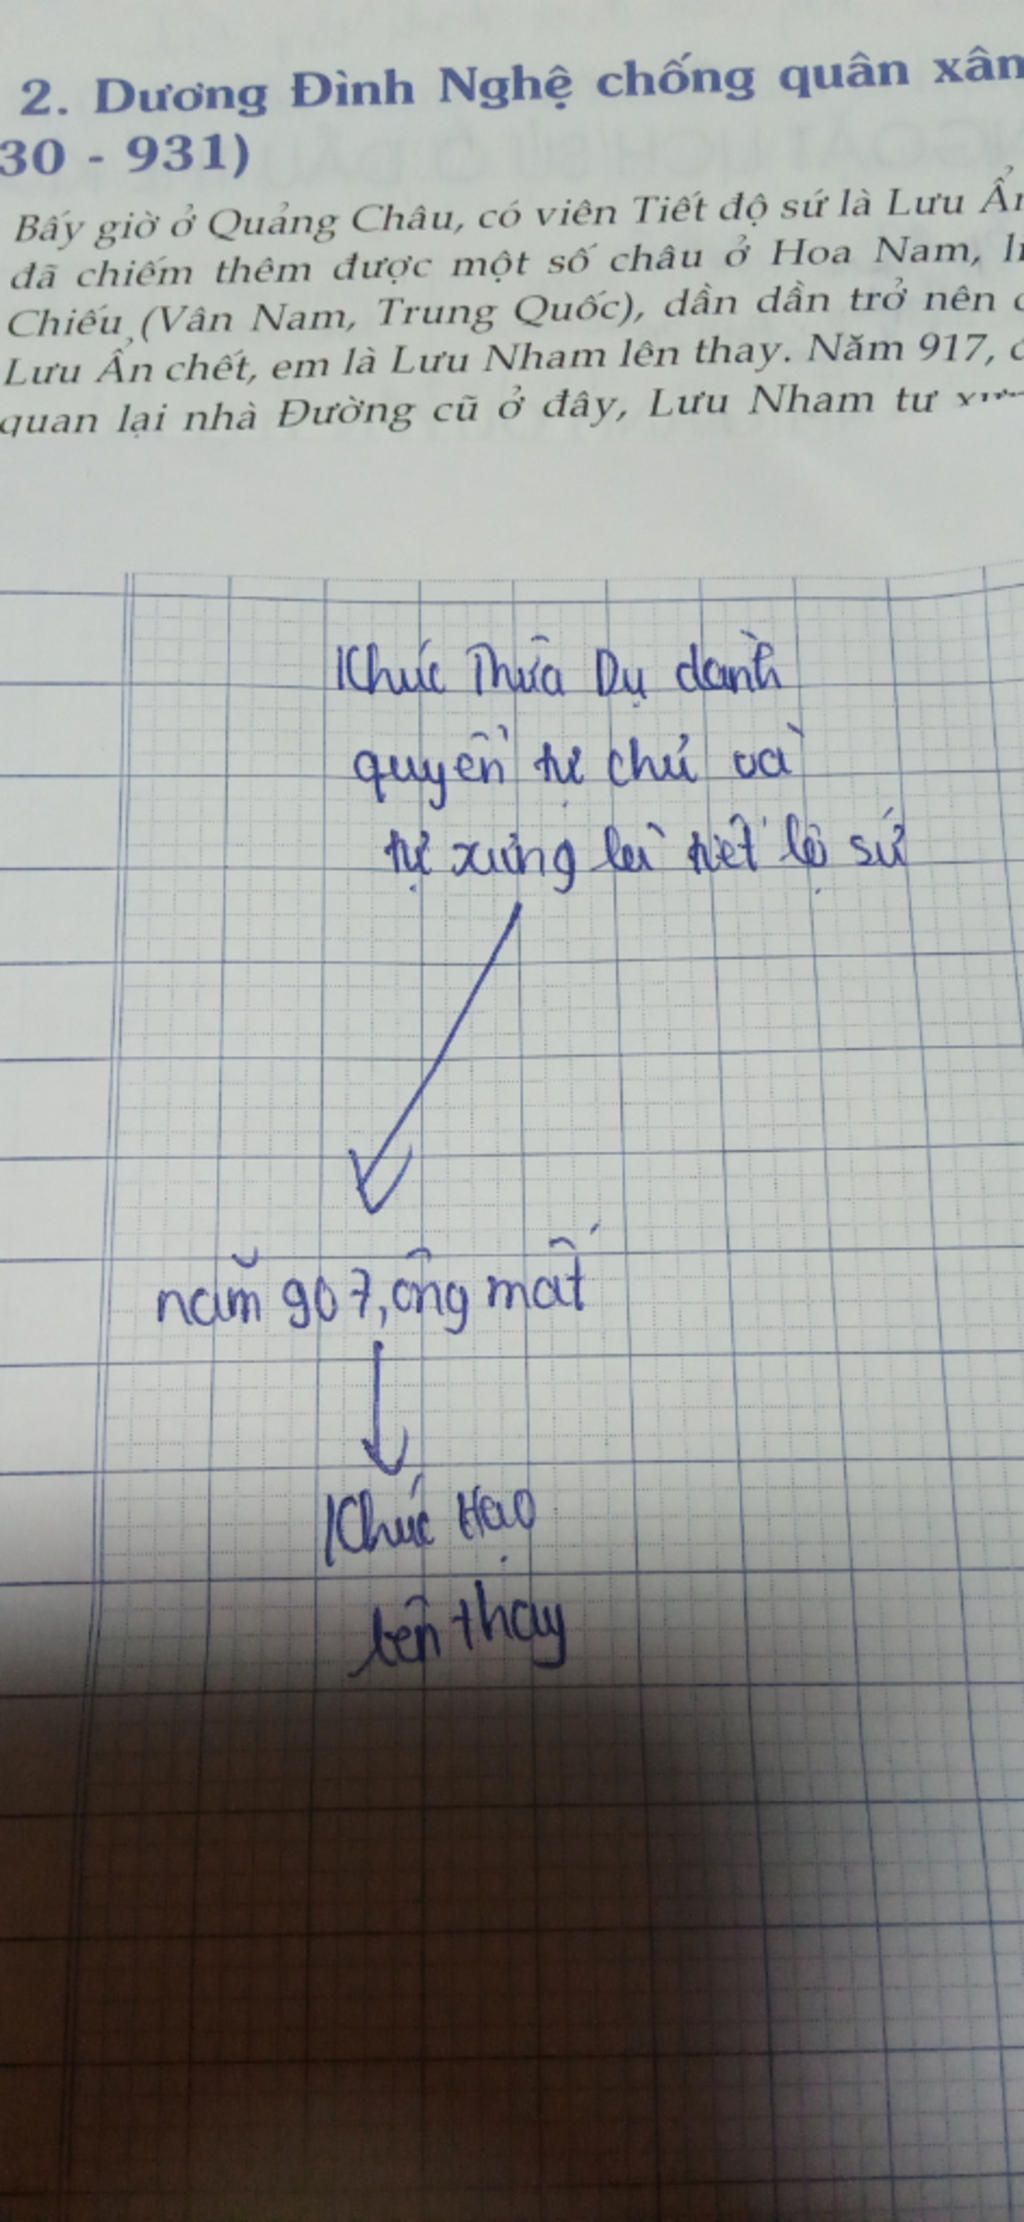 2. Dương Đình Nghệ chống quân xân
30 - 931)
Bấy giờ ở Quảng Châu, có viên Tiết độ sứ là Lưu Ẩn
đã chiếm thêm được một số châu ở Hoa Nam, li
Chiếu (Vân Nam, Trung Quốc), dần dần trở nên
Lưu Ẩn chết, em là Lưu Nham lên thay. Năm 917,
quan lại nhà Đường cũ ở đây, Lưu Nham tư
Khúc Thừa Dụ dành
quyền tự chủ và
tự xưng là tiết độ sứ
năm 907, ông mất
Khúc Hạo
lên thay